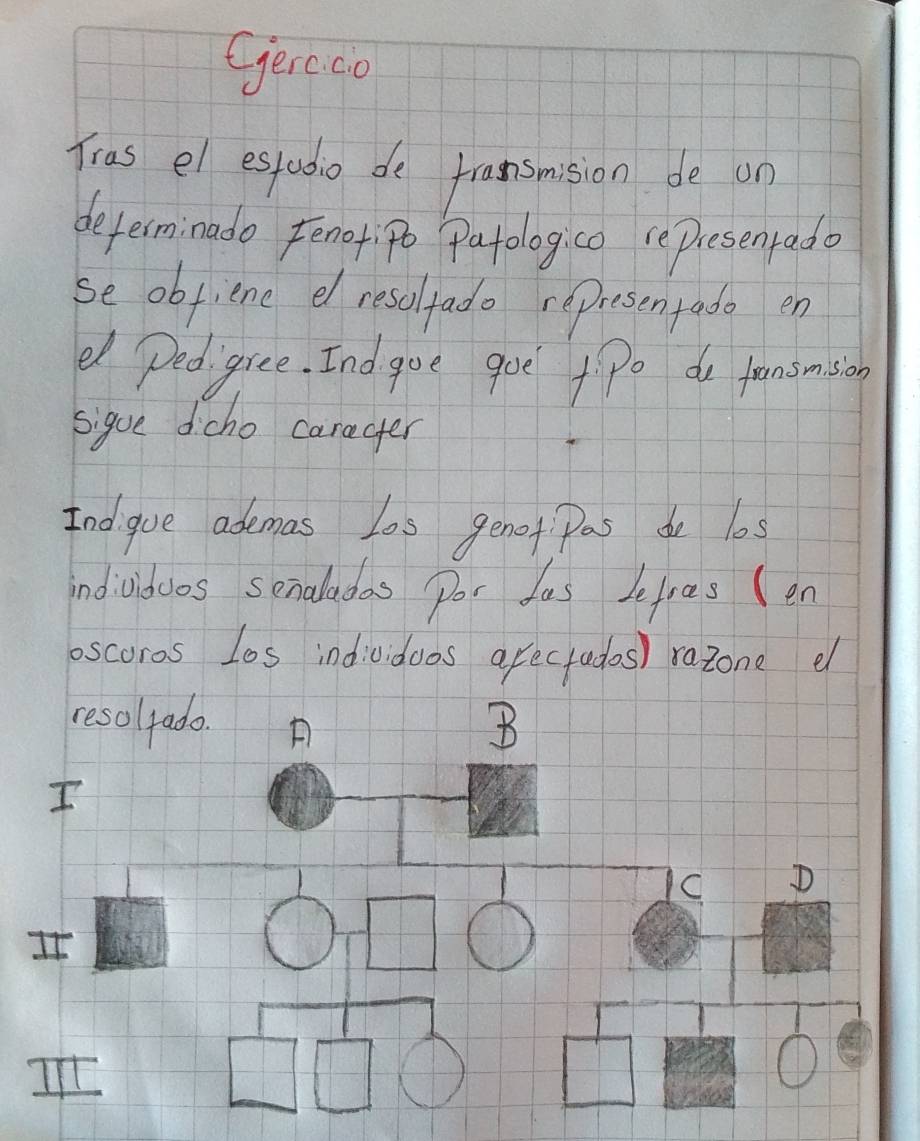 Ejercicio
Tras el estudio de transmision de un
determinado Fenotipo Patologico representado
se obtiene el resultado representado en
el Pedigree. Indique qué tipo de transmision
sigue dicho caracter
Indique ademas Los genotipas de los
individuos señalados por las letras (en
oscuros los individuos afectados) razone el
resultado.
A B
I
C D
II
III